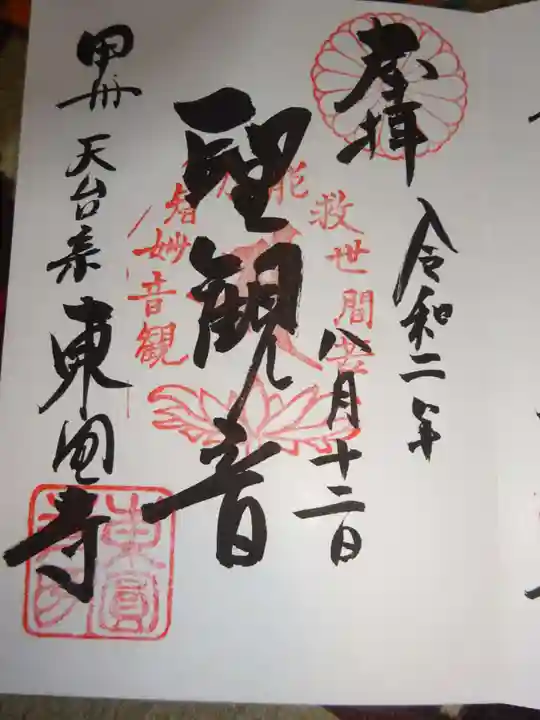 奉拝
令和二年
八月十二日
救世間苦
能
智妙音観
聖観音
甲州
天台宗
東圓寺
東圓